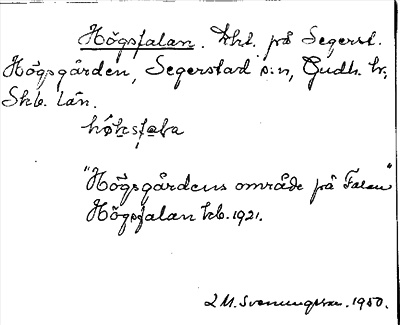 Högsfalan. Lht. på Segerst.
Högsgården, Segerstad s:n, Gudh. hr,
Skb. län.
hǿksfala
"Högsgårdens område på Falan"
Högsfalan kb. 1921.
L M. Svenungsson. 1950.